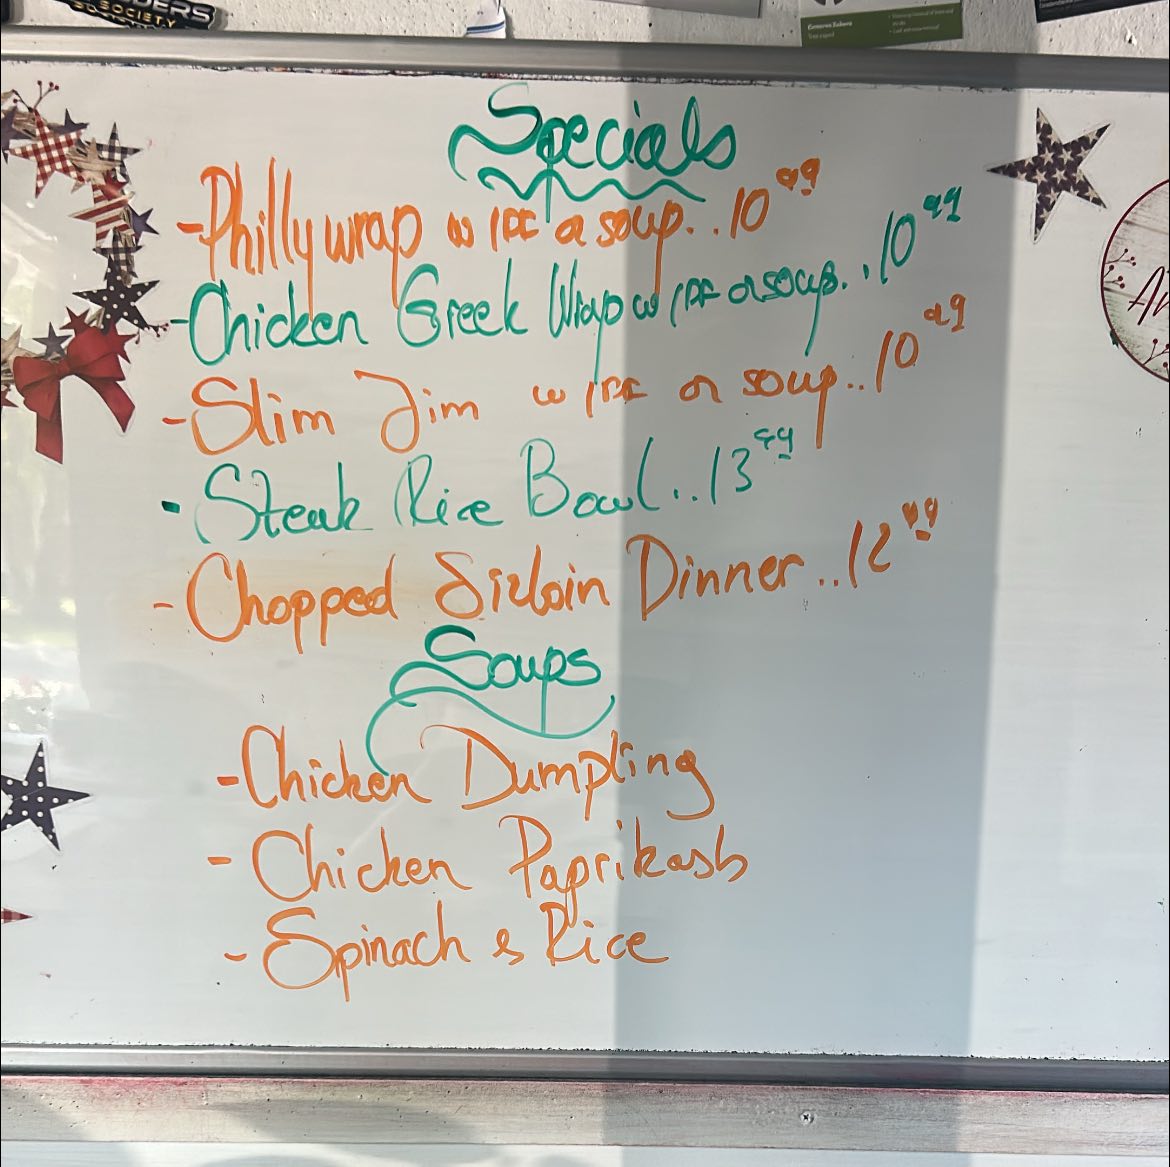 SOCIETY
Specials
-Philly wrap w/FF or soup..10⁹⁹
-Chicken Greek Wrap w/FF or soup..10⁹⁹
-Slim Jim w/FF or soup..10⁹⁹
-Steak Rice Bowl..13⁹⁹
-Chopped Sirloin Dinner..12⁹⁹
Soups
-Chicken Dumpling
-Chicken Paprikash
-Spinach & Rice